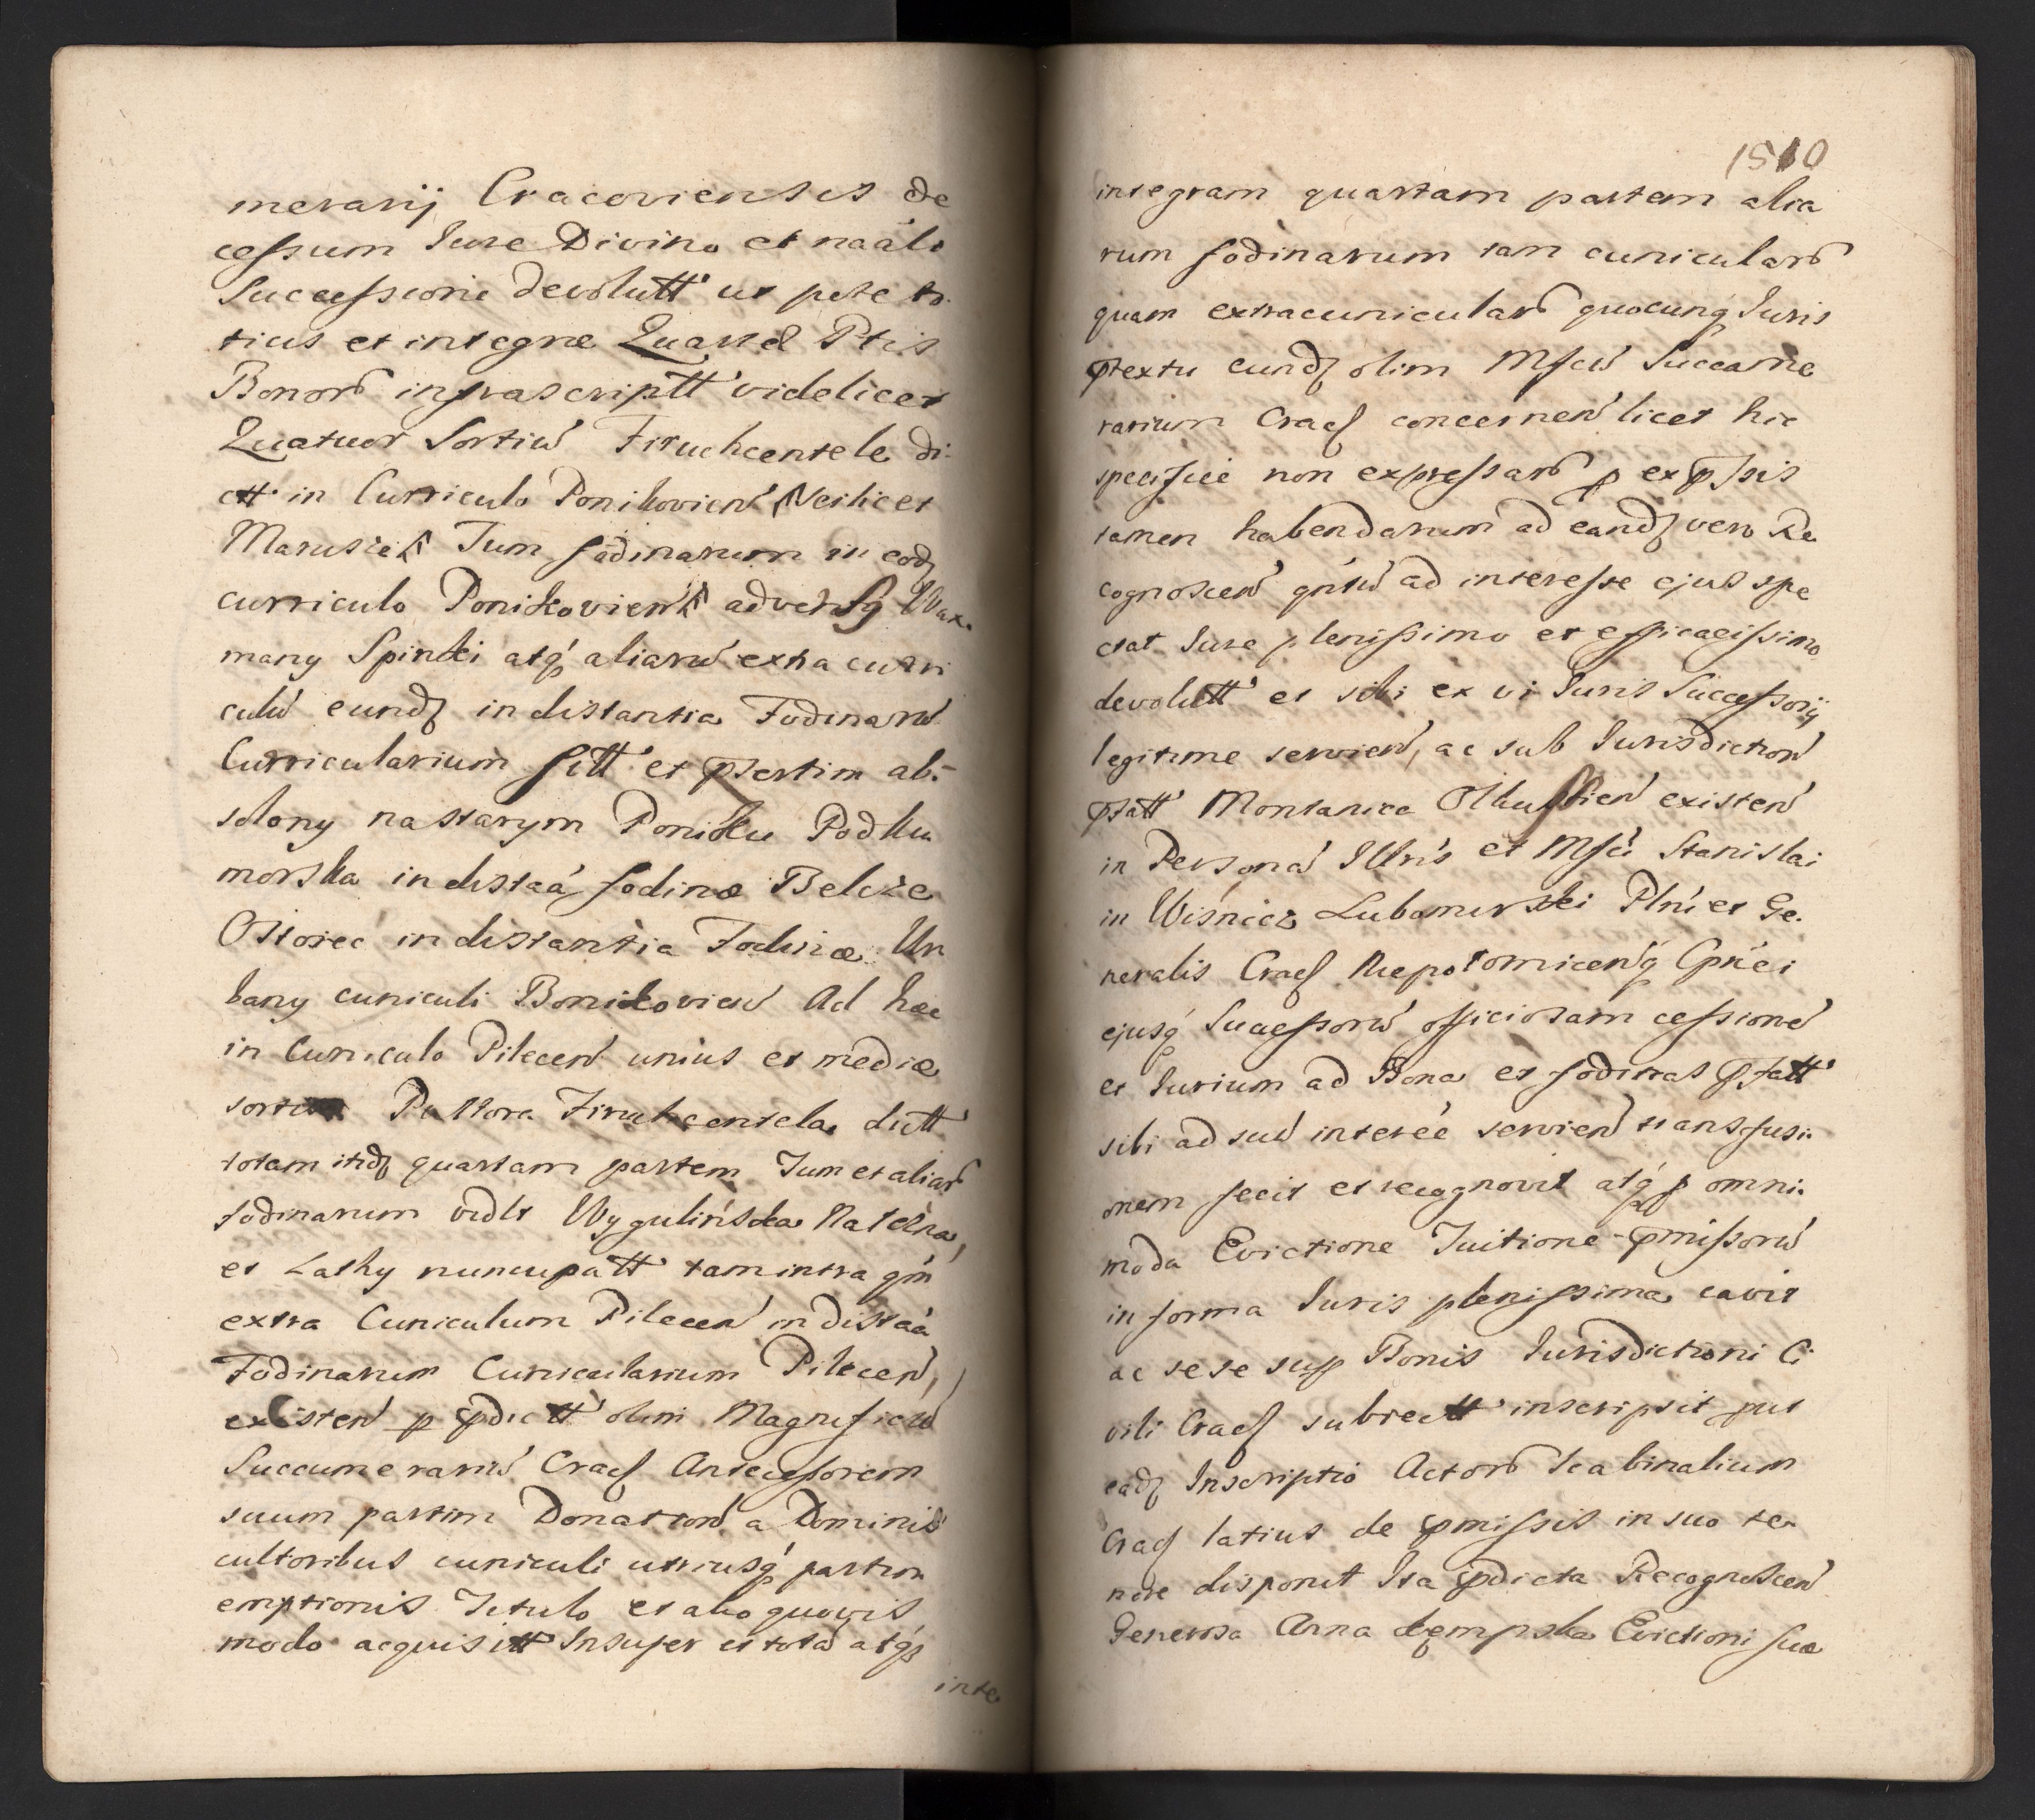 merarij Cracoviensis de
cessum Jure Divino et naãli
Successorie devolutt' ut pote to
tius et integræ Quartæ Ptis
Bonorũ infrascriptt' videlicet
Quatuor Sortiũ Firuchcentele di
ctt in Curriculo Ponikovien
Marusze Tum fodinarum in eodʒ
curriculo Ponikovien adversg Wax
many Spinki atq aliarũ extra curri
culũ eundʒ in distantia Fodinarũ
Curricularium sitt' et p̃sertim ab-
solony nastarym Poniku Podku
morska in distaã fodinæ Belcze
Ostorec in distantia Fodinæ Ur
bany cuniculi Bonikovien Ad hæc
in Cuniculo Pilecen unius et mediæ
Firuchcentela dictt
totam itidʒ quartam partem Tum et aliarũ
fodinarum vidlt Wygulińska Natelna,
et Laski nuncupatt' tam intra qm
extra Cuniculum Pilecen in distaã
Fodinarum Cunicularium Pilecen,
existen p p̃dictt' olim Magnificũ
Succumerariũ Cracʃ Antecessorem
suum partim Donation a Dominis
cultoribus cuniculi utriusq partim
emptionis Titulo et alio quovis
modo acquisitt Insuper et totã atqʒ
inte
1510
integram quartam partem alia
rum fodinarum tam cunicularũ
quam extracunicularũ quocunq Juris
p̃textu eundʒ olim Mfcũ Succame
rarium Cracʃ concernen licet hic
specifice non expressarũ p exp̃ssis
tamen habendarum ad eandʒ vero Re
cognoscen gñtũ ad interesse ejus spe
ctat Jure plenissimo et efficacissimo
devolutt' et sibi ex vi Juris Successorij
legitime servien, ac sub Jurisdiction
p̃fatt' Montanica Olkussien existen
in Personã Illris et Mfci Stanislai
in Wisnicz Lubomirski Plni et Ge-
neralis Cracʃ Niepotomicenq Cpñei
ejusq Successorũ officiosam cessionẽ
et Jurium ad Bona et fodinas p̃fatt'
sibi ad suũ intereẽ servien transfusi-
onem fecit et recognovit atq p omni-
moda Evictione Tuitione p̃missorũ
in forma Juris plenissima cavit
ac sese sup Bonis Jurisdictioni Ci
vili Cracʃ subiectt' inscripsit put
eadʒ Inscriptio Actorũ Scabinalium
Cracʃ latius de p̃missis in suo te-
nore disponit Ita p̃dicta Recognoscen
Generosa Anna Dẹmpska Evictioni suæ